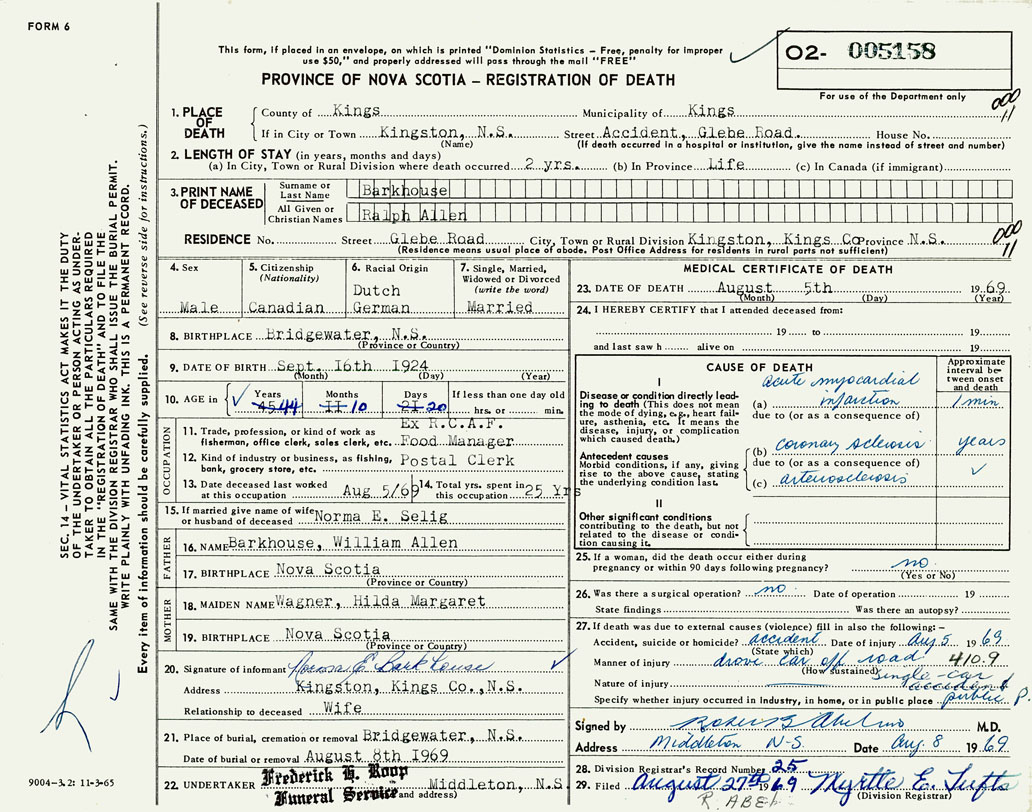 FORM 6
This form, if placed in an envelope, on which is printed "Dominion Statistics – Free, penalty for improper
use $50," and properly addressed will pass through the mail "FREE"
PROVINCE OF NOVA SCOTIA – REGISTRATION OF DEATH
O2- 005158
For use of the Department only
000
11
1. PLACE OF DEATH
County of Kings Municipality of Kings
If in City or Town Kingston, N.S. Street Accident, Glebe Road. House No.
(Name) (If death occurred in a hospital or institution, give the name instead of street and number)
2. LENGTH OF STAY (in years, months and days)
(a) In City, Town or Rural Division where death occurred 2 yrs. (b) In Province Life (c) In Canada (if immigrant)
3. PRINT NAME OF DECEASED
Surname or Last Name Barkhouse
All Given or Christian Names Ralph Allen
RESIDENCE No. Street Glebe Road City, Town or Rural Division Kingston, Kings Co Province N.S.
(Residence means usual place of abode. Post Office Address for residents in rural parts not sufficient)
000
11
4. Sex
Male
5. Citizenship
(Nationality)
Canadian
6. Racial Origin
Dutch
German
7. Single, Married,
Widowed or Divorced
(write the word)
Married
8. BIRTHPLACE Bridgewater, N.S.
(Province or Country)
9. DATE OF BIRTH Sept. 16th 1924
(Month) (Day) (Year)
10. AGE in Years Months Days If less than one day old
45 44 11 10 21 20 hrs. or min.
OCCUPATION
11. Trade, profession, or kind of work as
fisherman, office clerk, sales clerk, etc. Ex R.C.A.F. Food Manager
12. Kind of industry or business, as fishing,
bank, grocery store, etc. Postal Clerk
13. Date deceased last worked
at this occupation Aug 5/69
14. Total yrs. spent in
this occupation 25 Yrs
15. If married give name of wife
or husband of deceased Norma E. Selig
FATHER
16. NAME Barkhouse, William Allen
17. BIRTHPLACE Nova Scotia
(Province or Country)
MOTHER
18. MAIDEN NAME Wagner, Hilda Margaret
19. BIRTHPLACE Nova Scotia
(Province or Country)
20. Signature of informant Norma E. Barkhouse
Address Kingston, Kings Co., N.S.
Relationship to deceased Wife
21. Place of burial, cremation or removal Bridgewater, N.S.
Date of burial or removal August 8th 1969
22. UNDERTAKER Frederick H. Roop
Funeral Service Middleton, N.S
and address)
MEDICAL CERTIFICATE OF DEATH
23. DATE OF DEATH August 5th 1969
(Month) (Day) (Year)
24. I HEREBY CERTIFY that I attended deceased from:
19 to 19
and last saw h alive on 19
CAUSE OF DEATH
Approximate interval between onset and death
I
Disease or condition directly leading to death (This does not mean
the mode of dying, e.g., heart failure, asthenia, etc. It means the
disease, injury, or complication
which caused death.)
(a) acute myocardial
infarction 1 min
due to (or as a consequence of)
Antecedent causes
Morbid conditions, if any, giving
rise to the above cause, stating
the underlying condition last.
(b) coronary sclerosis years
due to (or as a consequence of)
(c) arteriosclerosis
II
Other significant conditions
contributing to the death, but not
related to the disease or condition causing it.
25. If a woman, did the death occur either during
pregnancy or within 90 days following pregnancy? no
(Yes or No)
26. Was there a surgical operation? no Date of operation 19
State findings Was there an autopsy?
27. If death was due to external causes (violence) fill in also the following: –
Accident, suicide or homicide? accident Date of injury Aug 5 1969
(State which)
Manner of injury drove car off road 410.9
(How sustained)
Nature of injury single-car
accident
Specify whether injury occurred in industry, in home, or in public place public P.
Signed by M.D.
Address Middleton N-S. Date Aug. 8 1969
28. Division Registrar's Record Number 25
29. Filed August 27th 1969 Myrtle E.
(Division Registrar)
SEC. 14 – VITAL STATISTICS ACT MAKES IT THE DUTY
OF THE UNDERTAKER OR PERSON ACTING AS UNDER-
TAKER TO OBTAIN ALL THE PARTICULARS REQUIRED
IN THE "REGISTRATION OF DEATH" AND TO FILE THE
SAME WITH THE DIVISION REGISTRAR WHO SHALL ISSUE THE BURIAL PERMIT.
WRITE PLAINLY WITH UNFADING INK. THIS IS A PERMANENT RECORD.
Every item of information should be carefully supplied. (See reverse side for instructions.)
9004–3.2: 11-3-65